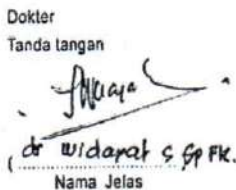 Dokter
Tanda tangan
( dr widayat s Sp FK.
Nama Jelas